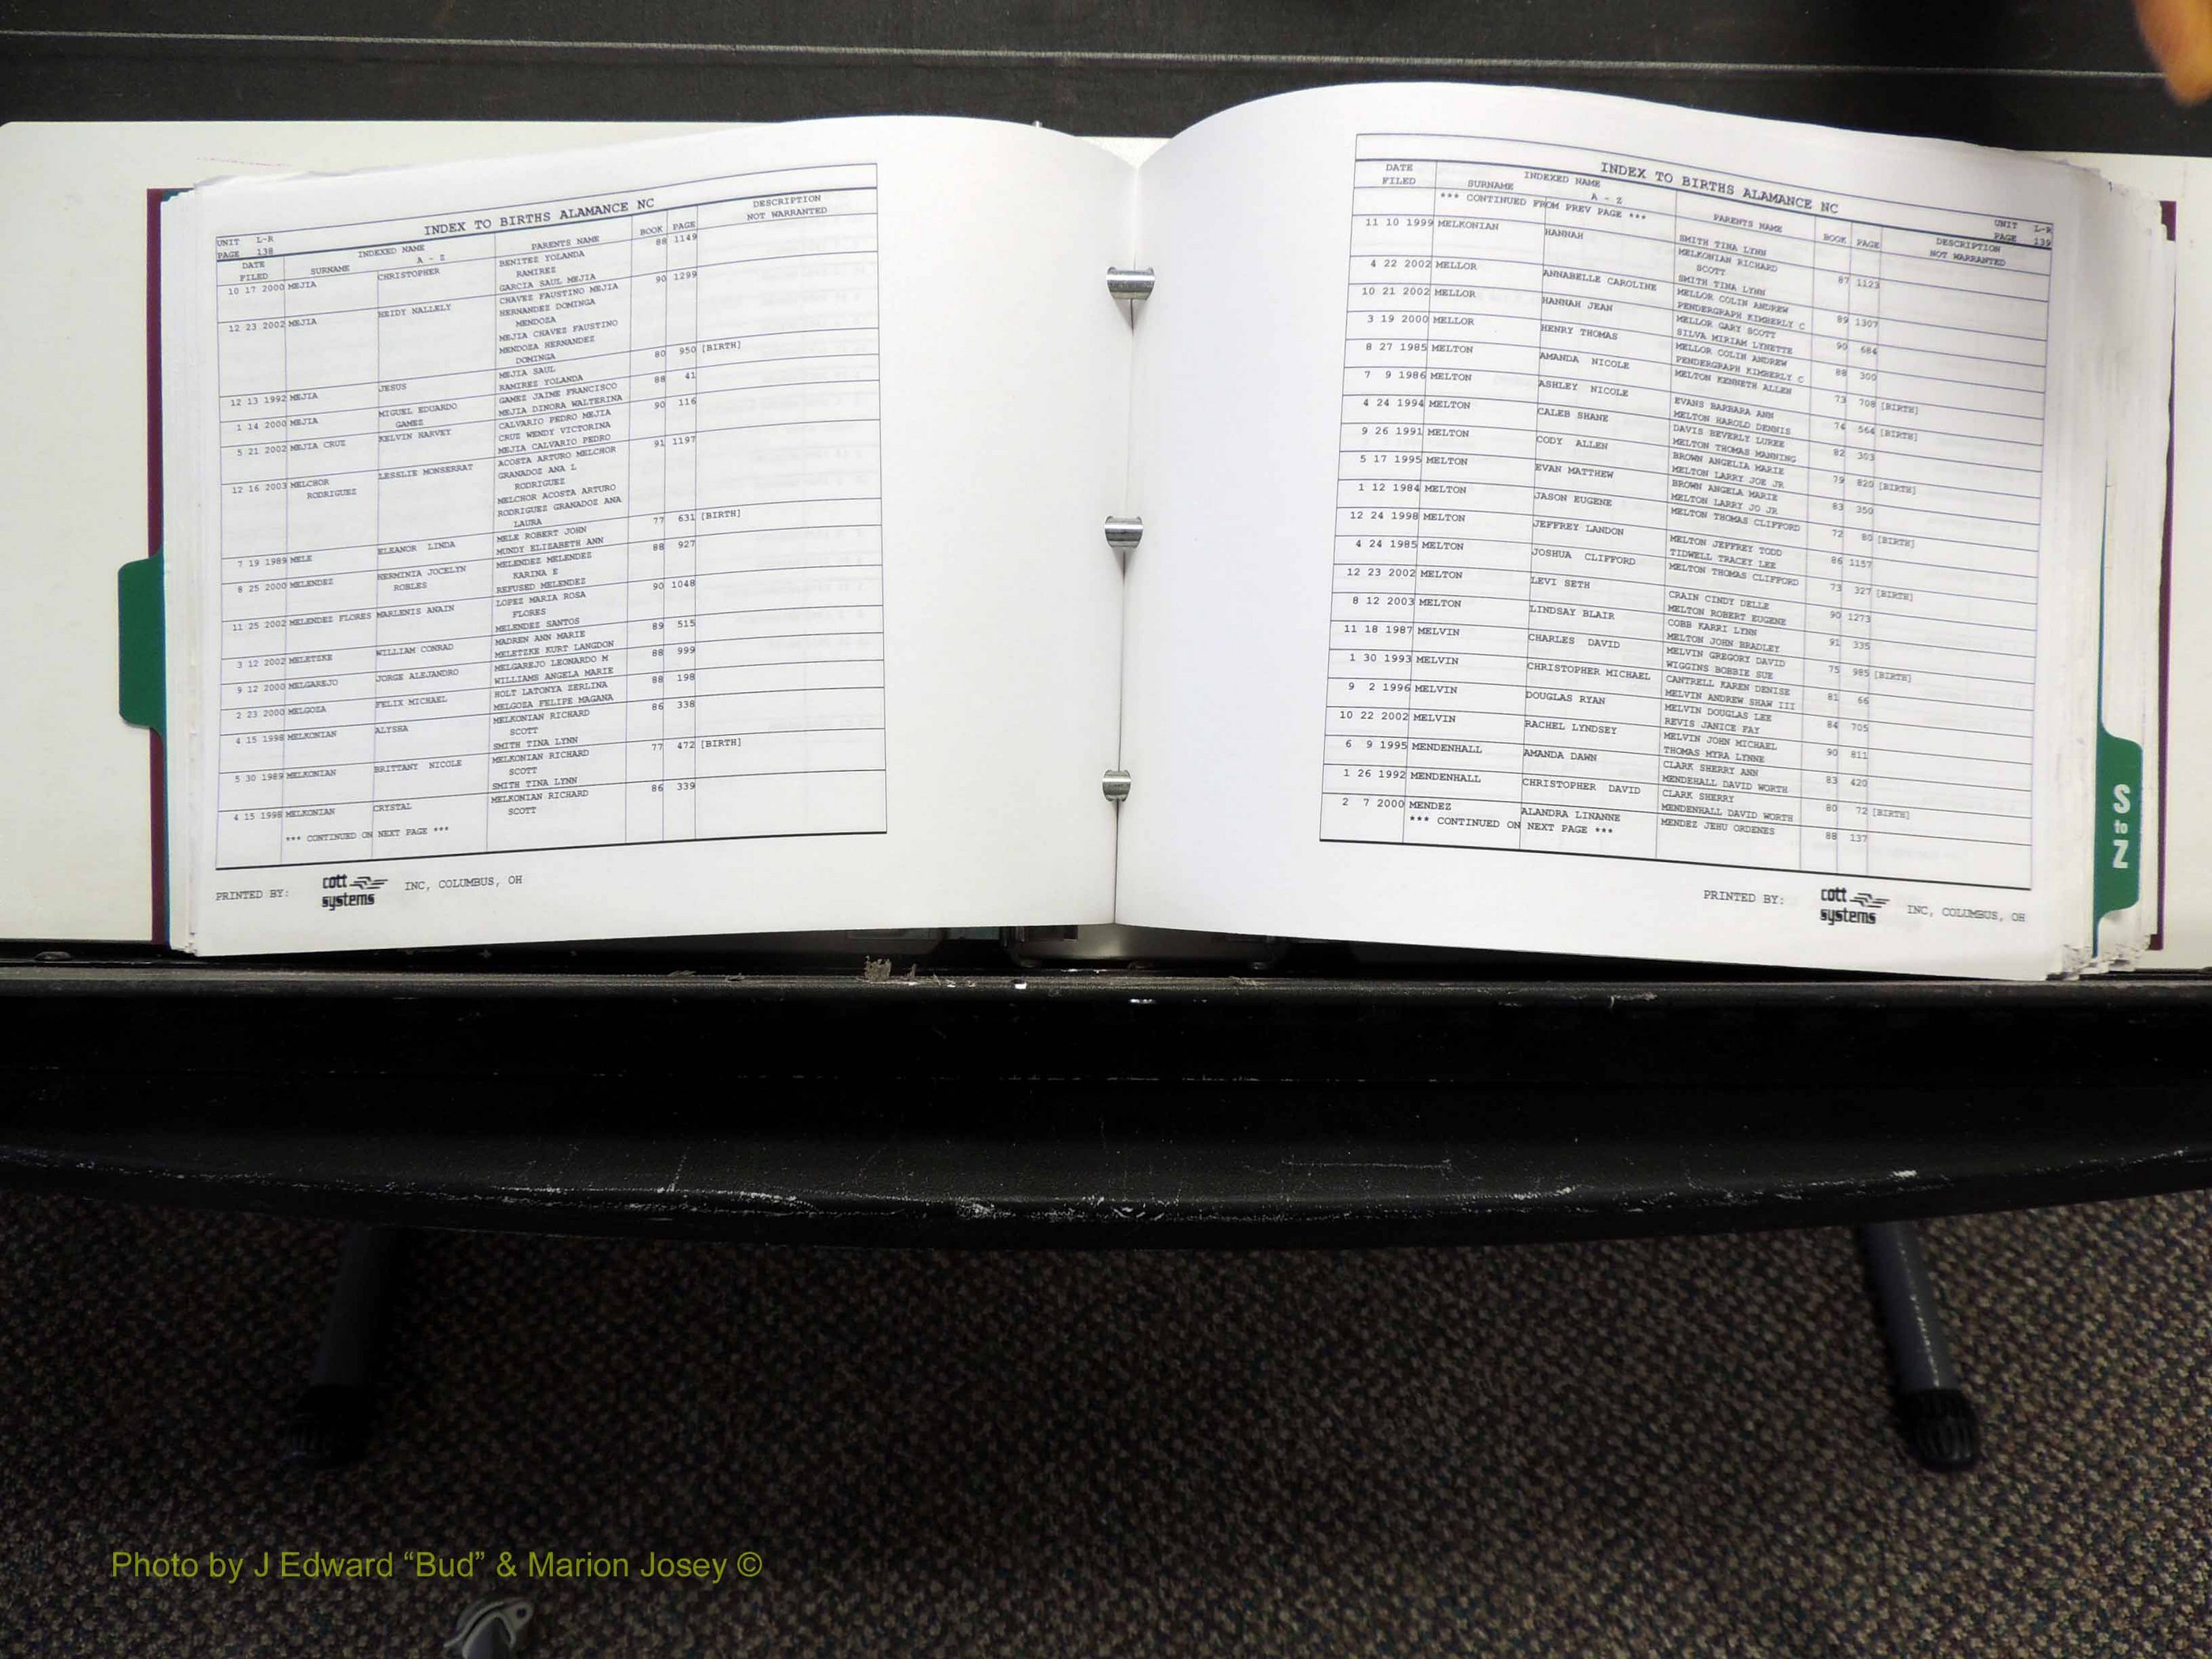 INDEX TO BIRTHS ALAMANCE NC
UNIT L-R
PAGE 138
DATE FILED SURNAME INDEXED NAME A - Z PARENTS NAME BOOK PAGE DESCRIPTION NOT WARRANTED
10 17 2000 MEJIA CHRISTOPHER BENITEZ YOLANDA 88 1149
RAMIREZ
GARCIA SAUL MEJIA
12 23 2002 MEJIA HEIDY NALLELY CHAVEZ FAUSTINO MEJIA 90 1299
HERNANDEZ DOMINGA
MENDOZA
MEJIA CHAVEZ FAUSTINO
MENDOZA HERNANDEZ
DOMINGA
12 13 1992 MEJIA JESUS MEJIA SAUL 80 950 [BIRTH]
RAMIREZ YOLANDA
1 14 2000 MEJIA MIGUEL EDUARDO GAMEZ JAIME FRANCISCO 88 41
GAMEZ MEJIA DINORA WALTERINA
5 21 2002 MEJIA CRUZ KELVIN HARVEY CALVARIO PEDRO MEJIA 90 116
CRUZ WENDY VICTORINA
MEJIA CALVARIO PEDRO
12 16 2003 MELCHOR LESSLIE MONSERRAT ACOSTA ARTURO MELCHOR 91 1197
RODRIGUEZ GRANADOZ ANA L
RODRIGUEZ
MELCHOR ACOSTA ARTURO
RODRIGUEZ GRANADOZ ANA
LAURA
7 19 1989 MELE ELEANOR LINDA MELE ROBERT JOHN 77 631 [BIRTH]
MUNDY ELIZABETH ANN
8 25 2000 MELENDEZ HERMINIA JOCELYN MELENDEZ MELENDEZ 88 927
ROBLES KARINA E
REFUSED MELENDEZ
11 25 2002 MELENDEZ FLORES MARLENIS ANAIN LOPEZ MARIA ROSA 90 1048
FLORES
MELENDEZ SANTOS
3 12 2002 MELETZKE WILLIAM CONRAD MADREN ANN MARIE 89 515
MELETZKE KURT LANGDON
9 12 2000 MELGAREJO JORGE ALEJANDRO MELGAREJO LEONARDO M 88 999
WILLIAMS ANGELA MARIE
2 23 2000 MELGOZA FELIX MICHAEL HOLT LATONYA ZERLINA 88 198
MELGOZA FELIPE MAGANA
4 15 1998 MELKONIAN ALYSHA MELKONIAN RICHARD 86 338
SCOTT
SMITH TINA LYNN
5 30 1989 MELKONIAN BRITTANY NICOLE MELKONIAN RICHARD 77 472 [BIRTH]
SCOTT
SMITH TINA LYNN
4 15 1998 MELKONIAN CRYSTAL MELKONIAN RICHARD 86 339
SCOTT
*** CONTINUED ON NEXT PAGE ***
PRINTED BY: cott systems INC, COLUMBUS, OH
INDEX TO BIRTHS ALAMANCE NC
UNIT L-R
PAGE 139
DATE FILED SURNAME INDEXED NAME A - Z PARENTS NAME BOOK PAGE DESCRIPTION NOT WARRANTED
*** CONTINUED FROM PREV PAGE ***
SMITH TINA LYNN
11 10 1999 MELKONIAN HANNAH MELKONIAN RICHARD 87 1123
SCOTT
SMITH TINA LYNN
4 22 2002 MELLOR ANNABELLE CAROLINE MELLOR COLIN ANDREW 89 1307
PENDERGRAPH KIMBERLY C
10 21 2002 MELLOR HANNAH JEAN MELLOR GARY SCOTT 90 684
SILVA MIRIAM LYNETTE
3 19 2000 MELLOR HENRY THOMAS MELLOR COLIN ANDREW 88 300
PENDERGRAPH KIMBERLY C
8 27 1985 MELTON AMANDA NICOLE MELTON KENNETH ALLEN 73 708 [BIRTH]
7 9 1986 MELTON ASHLEY NICOLE EVANS BARBARA ANN 74 564 [BIRTH]
MELTON HAROLD DENNIS
4 24 1994 MELTON CALEB SHANE DAVIS BEVERLY LUREE 82 303
MELTON THOMAS MANNING
9 26 1991 MELTON CODY ALLEN BROWN ANGELIA MARIE 79 820 [BIRTH]
MELTON LARRY JOE JR
5 17 1995 MELTON EVAN MATTHEW BROWN ANGELA MARIE 83 350
MELTON LARRY JO JR
1 12 1984 MELTON JASON EUGENE MELTON THOMAS CLIFFORD 72 80 [BIRTH]
12 24 1998 MELTON JEFFREY LANDON MELTON JEFFREY TODD 86 1157
TIDWELL TRACEY LEE
4 24 1985 MELTON JOSHUA CLIFFORD MELTON THOMAS CLIFFORD 73 327 [BIRTH]
12 23 2002 MELTON LEVI SETH CRAIN CINDY DELLE 90 1273
MELTON ROBERT EUGENE
8 12 2003 MELTON LINDSAY BLAIR COBB KARRI LYNN 91 335
MELTON JOHN BRADLEY
11 18 1987 MELVIN CHARLES DAVID MELVIN GREGORY DAVID 75 985 [BIRTH]
WIGGINS BOBBIE SUE
1 30 1993 MELVIN CHRISTOPHER MICHAEL CANTRELL KAREN DENISE 81 66
MELVIN ANDREW SHAW III
9 2 1996 MELVIN DOUGLAS RYAN MELVIN DOUGLAS LEE 84 705
REVIS JANICE FAY
10 22 2002 MELVIN RACHEL LYNDSEY MELVIN JOHN MICHAEL 90 811
THOMAS MYRA LYNNE
6 9 1995 MENDENHALL AMANDA DAWN CLARK SHERRY ANN 83 420
MENDEHALL DAVID WORTH
1 26 1992 MENDENHALL CHRISTOPHER DAVID CLARK SHERRY 80 72 [BIRTH]
MENDENHALL DAVID WORTH
2 7 2000 MENDEZ ALANDRA LINANNE MENDEZ JEHU ORDENES 88 137
*** CONTINUED ON NEXT PAGE ***
PRINTED BY: cott systems INC, COLUMBUS, OH
S to Z
Photo by J Edward “Bud” & Marion Josey ©